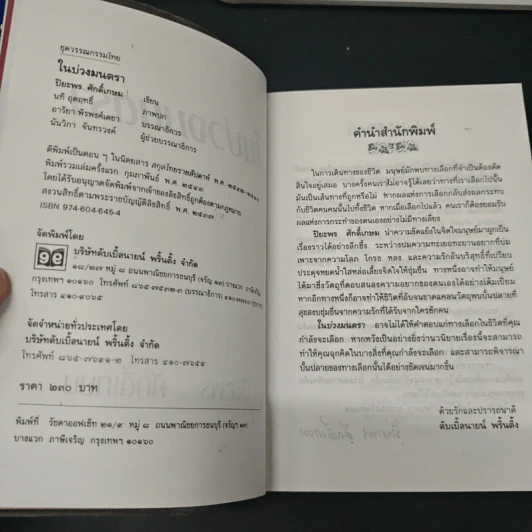 ชุดวรรณกรรมไทย
ในบ่วงมนตรา
ปิยะพร ศักดิ์เกษม เขียน
นที อุตฤทธิ์ ภาพปก
อาริยา พิรพงศ์เดชา บรรณาธิการ
นันวิภา จันทรวงศ์ ผู้ช่วยบรรณาธิการ
ตีพิมพ์เป็นตอน ๆ ในนิตยสาร สกุลไทยรายสัปดาห์ พ.ศ.
พิมพ์รวมเล่มครั้งแรก กุมภาพันธ์ พ.ศ. ๒๕๔๓
โดยได้รับอนุญาตจัดพิมพ์จากเจ้าของลิขสิทธิ์ถูกต้องตามกฎหมาย
สงวนสิทธิ์ตามพระราชบัญญัติลิขสิทธิ์ พ.ศ. ๒๕๓๗
ISBN 974-604-645-4
จัดพิมพ์โดย
บริษัทดับเบิ้ลนายน์ พริ้นติ้ง จำกัด
๑๘/๒๗ หมู่ ๘ ถนนพาณิชยการธนบุรี (จรัญ ๑๓) บางแวก ภาษีเจริญ
กรุงเทพฯ ๑๐๑๖๐ โทรศัพท์ (บรรณาธิการ)
โทรสาร ๔๑๐-๗๐๖๕
จัดจำหน่ายทั่วประเทศโดย
บริษัทดับเบิ้ลนายน์ พริ้นติ้ง จำกัด
โทรศัพท์ ๘๖๕-๗๖๔๑-๒ โทรสาร ๔๑๐-๗๖๕๔
ราคา ๒๓๐ บาท
พิมพ์ที่ รัชดาออฟเซ็ท ๒๑/๙ หมู่ ๘ ถนนพาณิชยการธนบุรี (จรัญ ๑๓)
บางแวก ภาษีเจริญ กรุงเทพฯ ๑๐๑๖๐
คำนำสำนักพิมพ์
ในการเดินทางของชีวิต มนุษย์มักพบทางเลือกที่จำเป็นต้องตัด
สินใจอยู่เสมอ บางครั้งคนเราไม่อาจรู้ได้เลยว่าทางที่เราเลือกไปนั้น
มันเป็นเส้นทางที่ถูกหรือไม่ หากผลแห่งการเลือกกลับส่งผลกระทบ
กับชีวิตคนคนนั้นไปทั้งชีวิต เมื่อเลือกไปแล้ว คนเราก็ต้องยอมรับ
ผลแห่งการกระทำของตนเองอย่างไม่มีทางเลี่ยง
ปิยะพร ศักดิ์เกษม นำความขัดแย้งในจิตใจมนุษย์มาผูกเป็น
เรื่องราวได้อย่างลึกซึ้ง ระหว่างปมความทะเยอทะยานอยากที่บ่ม
เพาะจากความโลภ โกรธ หลง และความรักอันบริสุทธิ์ที่เปรียบ
ประดุจหยดน้ำใสหล่อเลี้ยงจิตใจให้ชุ่มชื่น ทางหนึ่งอาจทำให้มนุษย์
ได้มาซึ่งวัตถุที่ตอบสนองความอยากของตนเองได้อย่างเต็มเปี่ยม
หากอีกทางหนึ่งก็อาจทำให้ชีวิตที่อับจนขาดแคลนวัตถุพบบั้นปลายที่
สุขสงบชุ่มชื่นจากความรักที่ได้รับจากใครซักคน
ในบ่วงมนตรา อาจไม่ได้ให้คำตอบแก่ทางเลือกในชีวิตที่คุณ
กำลังจะเลือก หากหวังเป็นอย่างยิ่งว่านวนิยายเรื่องนี้จะสามารถ
ทำให้คุณฉุกคิดในบางสิ่งที่คุณกำลังจะเลือก และสามารถพิจารณา
บั้นปลายของทางเลือกนั้นได้อย่างชัดเจนมากขึ้น
ด้วยรักและปรารถนาดี
ดับเบิ้ลนายน์ พริ้นติ้ง